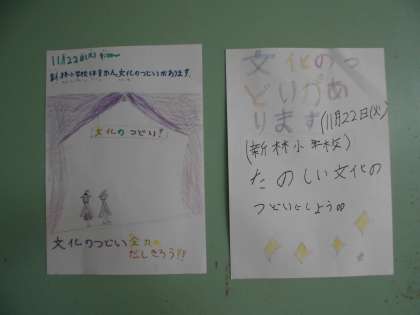 11月22日(火)
新林小学校体育かん文化のつどいがあります。
文化のつどい!
文化のつどい全力
だしきろう!!
文化のつ
どいがあ
ります
(11月22日(火)
(新林小学校)
たのしい文化の
つどいにしよう